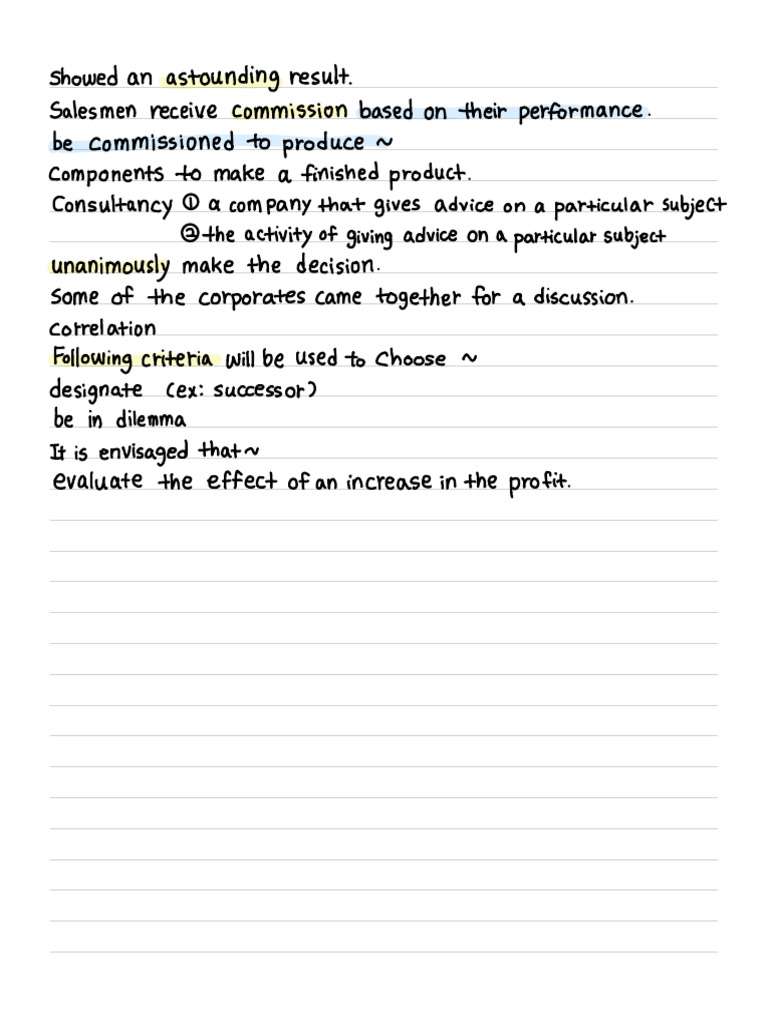 Showed an astounding result.
Salesmen receive commission based on their performance.
be commissioned to produce ~
Components to make a finished product.
Consultancy ① a company that gives advice on a particular subject
② the activity of giving advice on a particular subject
unanimously make the decision.
Some of the corporates came together for a discussion.
correlation
Following criteria will be used to choose ~
designate (ex: successor)
be in dilemma
It is envisaged that ~
evaluate the effect of an increase in the profit.